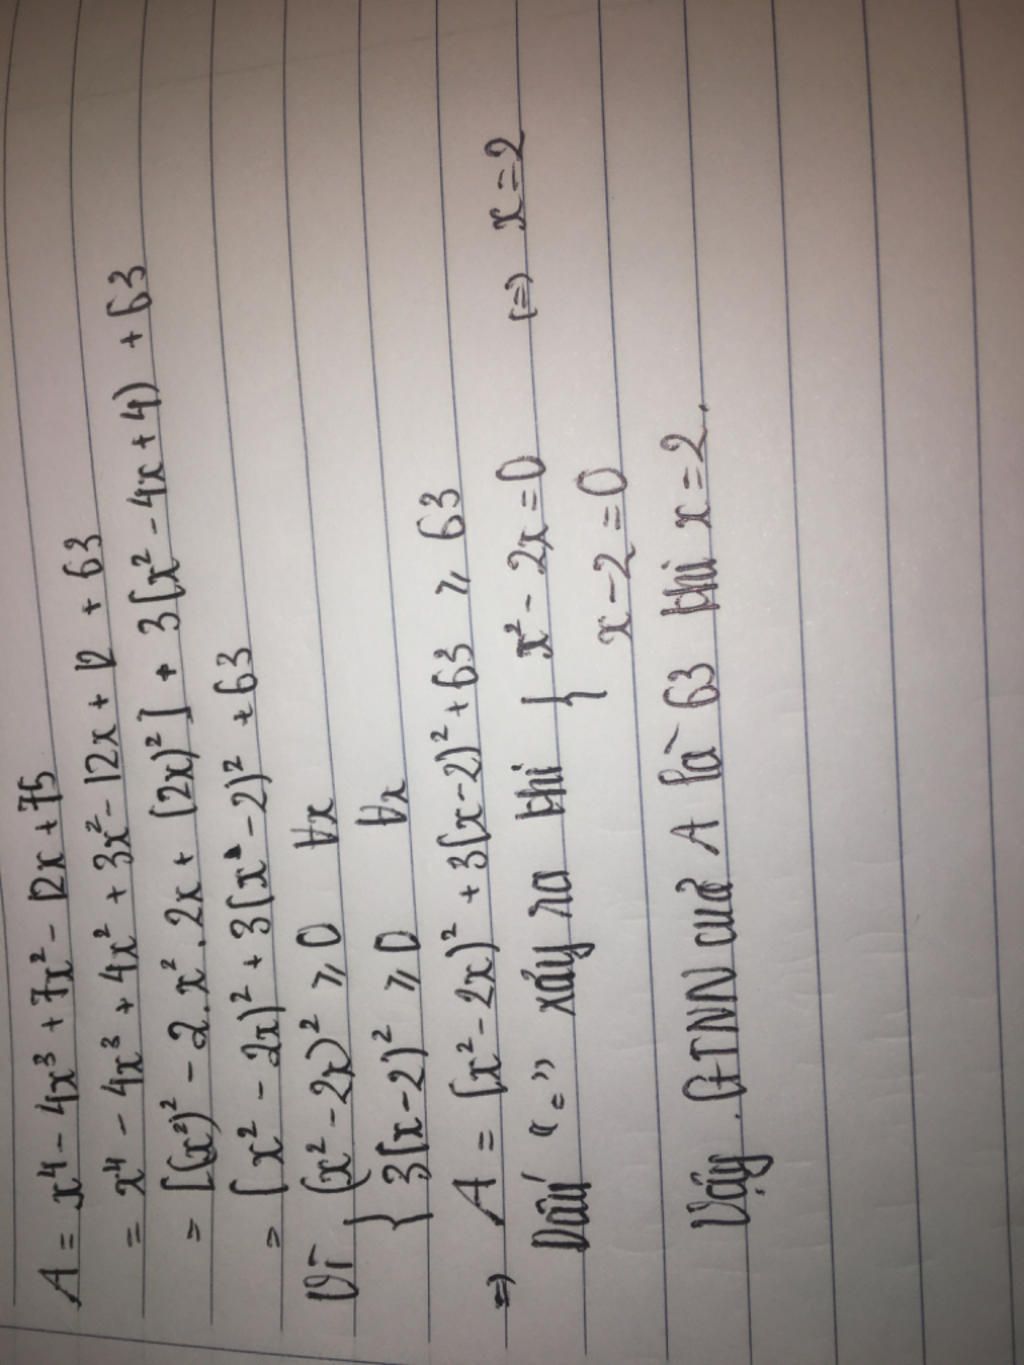 A = x⁴ - 4x³ + 7x² - 12x + 75
= x⁴ - 4x³ + 4x² + 3x² - 12x + 12 + 63
= [(x²)² - 2.x².2x + (2x)²] + 3(x² - 4x + 4) + 63
= (x² - 2x)² + 3(x - 2)² + 63
Vì { (x² - 2x)² ⩾ 0 ∀x
3(x - 2)² ⩾ 0 ∀x
=) A = (x² - 2x)² + 3(x - 2)² + 63 ⩾ 63
Dấu "=" xảy ra khi { x² - 2x = 0 (=) x = 2
x - 2 = 0
Vậy GTNN của A là 63 khi x = 2.